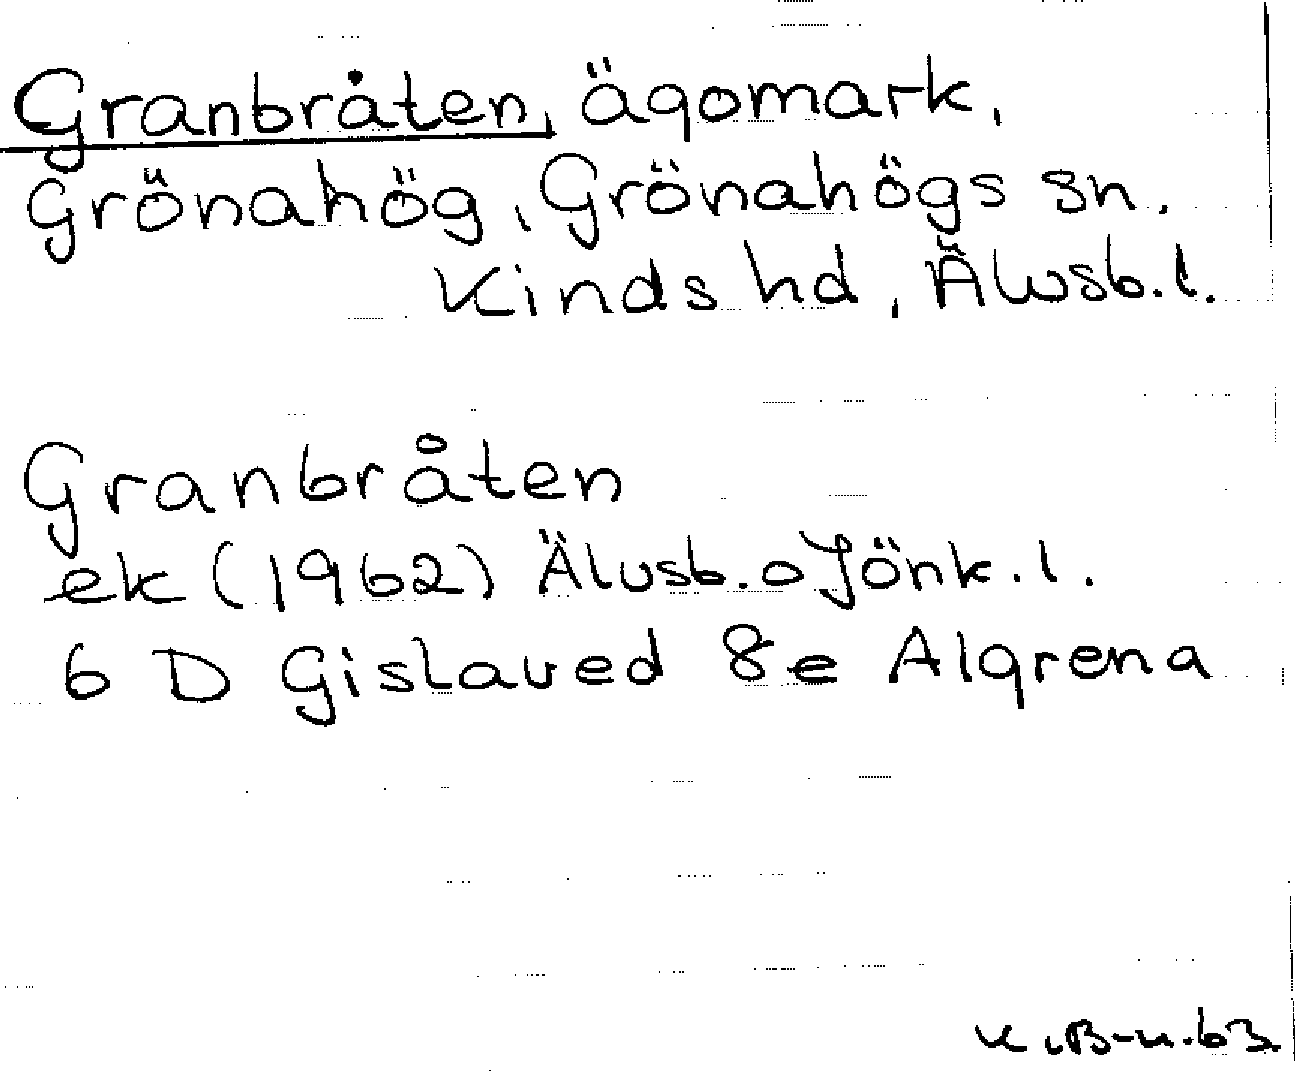 Granbråten, ägomark,
Grönahög, Grönahögs sn.
Kinds hd, Älvsb.l.
Granbråten
ek (1962) Älvsb. o Jönk. l.
6 D Gislaved 8e Algrena
K.B-n.63.